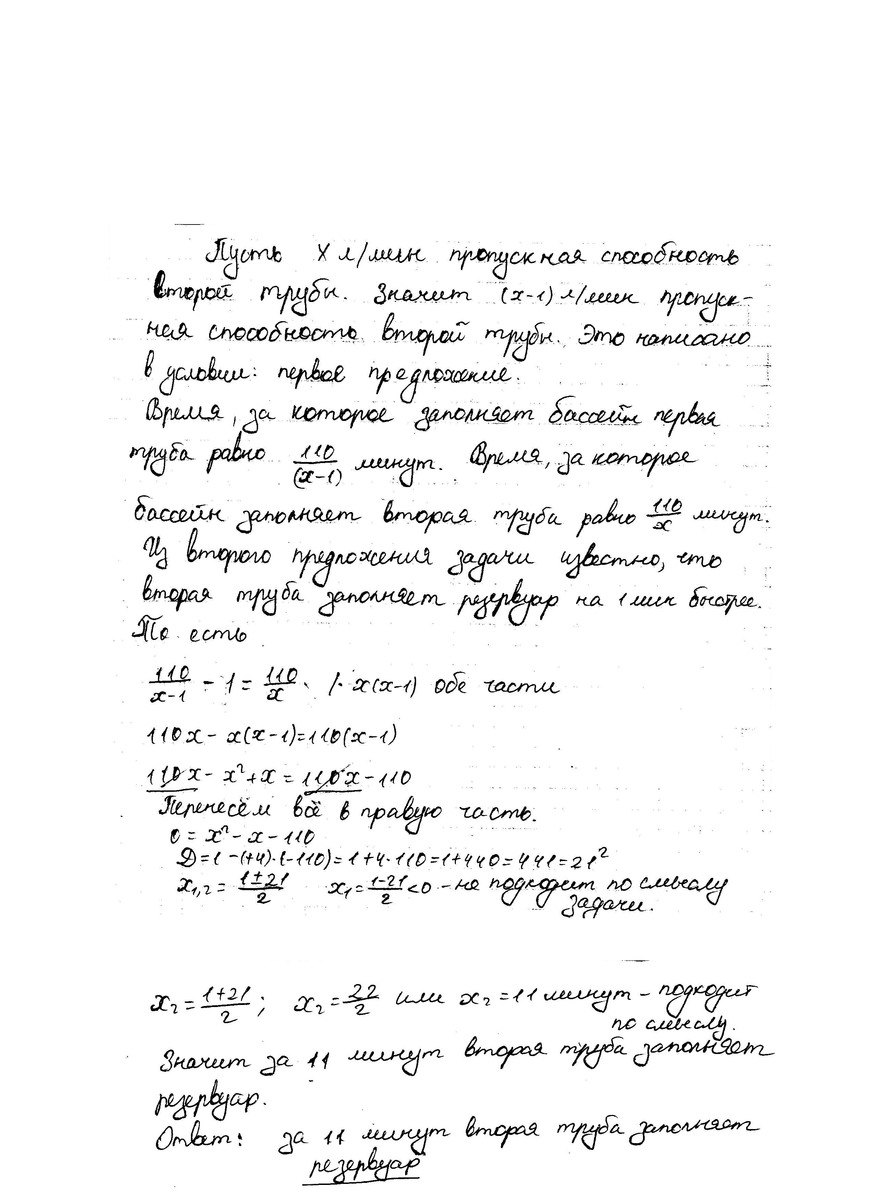 Пусть x л/мин пропускная способность
второй трубы. Значит (x-1) л/мин пропуск-
ная способность второй трубы. Это написано
в условии: первое предложение.
Время, за которое заполняет бассейн первая
труба равно 110/(x-1) минут. Время, за которое
бассейн заполняет вторая труба равно 110/x минут.
Из второго предложения задачи известно, что
вторая труба заполняет резервуар на 1 мин быстрее.
То есть
110/x-1 - 1 = 110/x. /· x(x-1) обе части
110x - x(x-1)=110(x-1)
110x - x²+x = 110x - 110
Перенесём всё в правую часть.
0 = x² - x - 110
D=1 -(+4)·(-110)=1+4·110=1+440=441=21²
x₁,₂ = 1±21/2 x₁=1-21/2<0 - не подходит по смыслу
задачи.
x₂=1+21/2; x₂=22/2 или x₂=11 минут - подходит
по смыслу.
Значит за 11 минут вторая труба заполняет
резервуар.
Ответ: за 11 минут вторая труба заполняет
резервуар